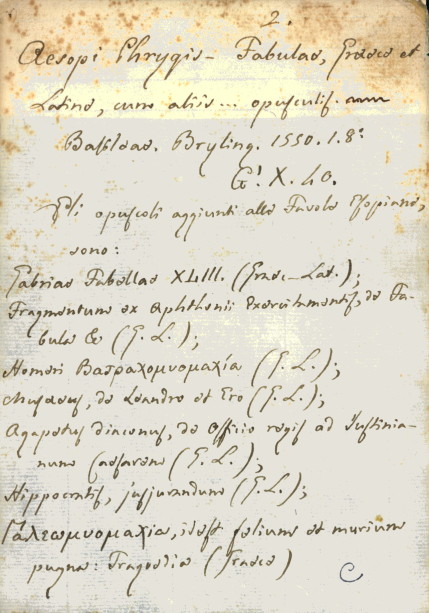 2.
Aesopi Phrygis - Fabulae, Graece et
Latine, cum aliis ... opusculis.
Basileae. Bryling. 1550. 1. 8.
G'. X. 40.
Gli opuscoli aggiunti alle Favole Esopiane,
sono:
Gabriae Fabellae XLIII. (Graec-Lat.);
Fragmentum ex Aphthonii Exercitamentis, de Fa-
bula &c (G. L.);
Homeri Βατραχομυομαχία (G. L.);
Musaeus, de Leandro et Ero (G. L.);
Agapetus diaconus, de Officio regis ad Justinia-
num Caesarem (G. L.);
Hippocratis, jusjurandum (G. L.);
Γαλεωμυομαχία, idest felium et murium
pugna: Tragoedia (Graece)
C